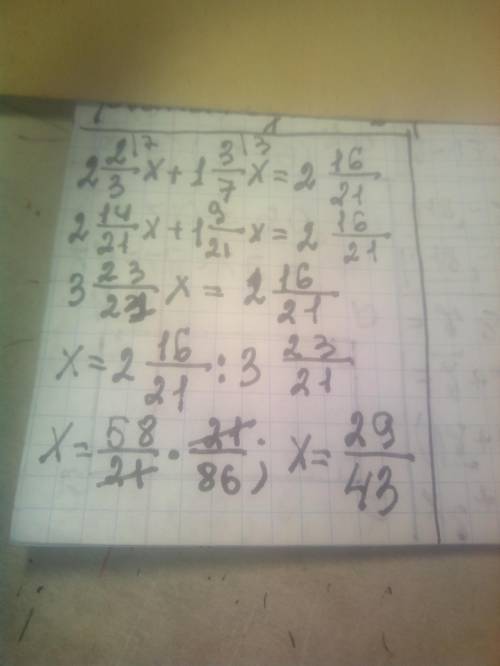 2 2/3|7 x + 1 3/7|3 x = 2 16/21
2 14/21 x + 1 9/21 x = 2 16/21
3 23/21 x = 2 16/21
x = 2 16/21 : 3 23/21
x = 58/21 · 21/86; x = 29/43